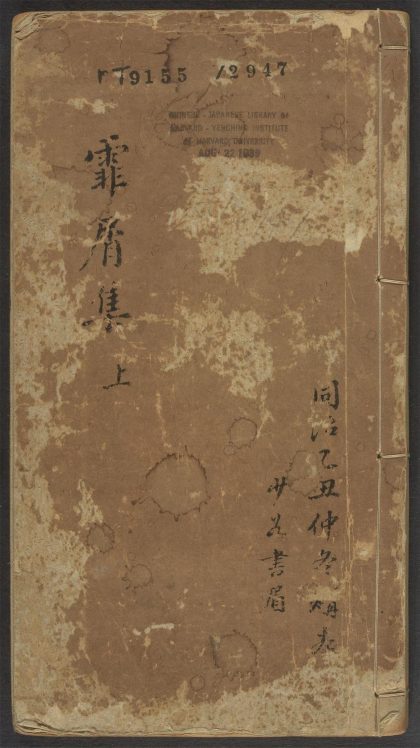 T9155 /2947
CHINESE - JAPANESE LIBRARY OF
HARVARD - YENCHING INSTITUTE
AT HARVARD UNIVERSITY
AUG 22 1939
霏屑集
上
同治乙丑仲冬
書眉